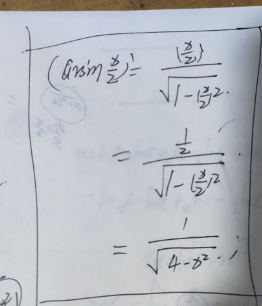 (arcsin x/2)' = (x/2)' / √(1-(x/2)²
= 1/2 / √(1-(x/2)²
= 1 / √(4-x²) ;